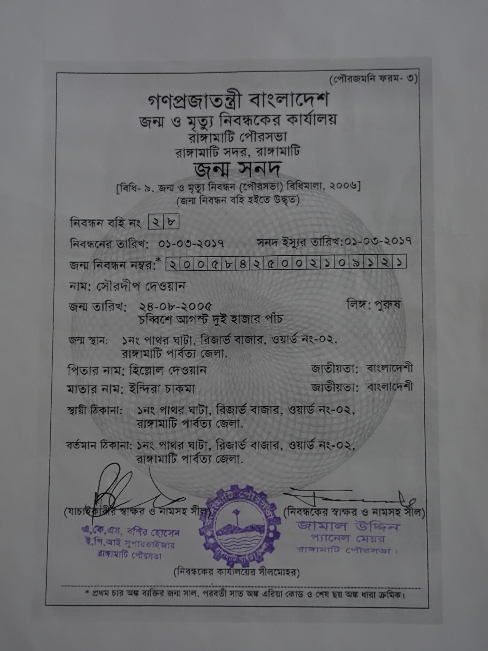 (পৌরজমনি ফরম- ৩)
গণপ্রজাতন্ত্রী বাংলাদেশ
জন্ম ও মৃত্যু নিবন্ধকের কার্যালয়
রাঙ্গামাটি পৌরসভা
রাঙ্গামাটি সদর, রাঙ্গামাটি
জন্ম সনদ
[বিধি- ৯, জন্ম ও মৃত্যু নিবন্ধন (পৌরসভা) বিধিমালা, ২০০৬]
(জন্ম নিবন্ধন বহি হইতে উদ্ধৃত)
নিবন্ধন বহি নং ২৮
নিবন্ধনের তারিখ: ০১-০৩-২০১৭ সনদ ইস্যুর তারিখ:০১-০৩-২০১৭
জন্ম নিবন্ধন নম্বর:* ২০০৫৮৪২৫০০২১০৯১২১
নাম: সৌরদীপ দেওয়ান
জন্ম তারিখ: ২৪-০৮-২০০৫ লিঙ্গ: পুরুষ
চব্বিশে আগস্ট দুই হাজার পাঁচ
জন্ম স্থান: ১নং পাথর ঘাটা, রিজার্ভ বাজার, ওয়ার্ড নং-০২,
রাঙ্গামাটি পার্বত্য জেলা.
পিতার নাম: হিল্লোল দেওয়ান জাতীয়তা: বাংলাদেশী
মাতার নাম: ইন্দিরা চাকমা জাতীয়তা: বাংলাদেশী
স্থায়ী ঠিকানা: ১নং পাথর ঘাটা, রিজার্ভ বাজার, ওয়ার্ড নং-০২,
রাঙ্গামাটি পার্বত্য জেলা.
বর্তমান ঠিকানা: ১নং পাথর ঘাটা, রিজার্ভ বাজার, ওয়ার্ড নং-০২,
রাঙ্গামাটি পার্বত্য জেলা.
(যাচাইকারীর স্বাক্ষর ও নামসহ সীল) (নিবন্ধকের স্বাক্ষর ও নামসহ সীল)
এ,কে,এম, বশির হোসেন
ই.পি.আই সুপারভাইজার
রাঙ্গামাটি পৌরসভা
জামাল উদ্দিন
প্যানেল মেয়র
রাঙ্গামাটি পৌরসভা।
(নিবন্ধকের কার্যালয়ের সীলমোহর)
* প্রথম চার অঙ্ক ব্যক্তির জন্ম সাল, পরবর্তী সাত অঙ্ক এরিয়া কোড ও শেষ ছয় অঙ্ক ধারা ক্রমিক।